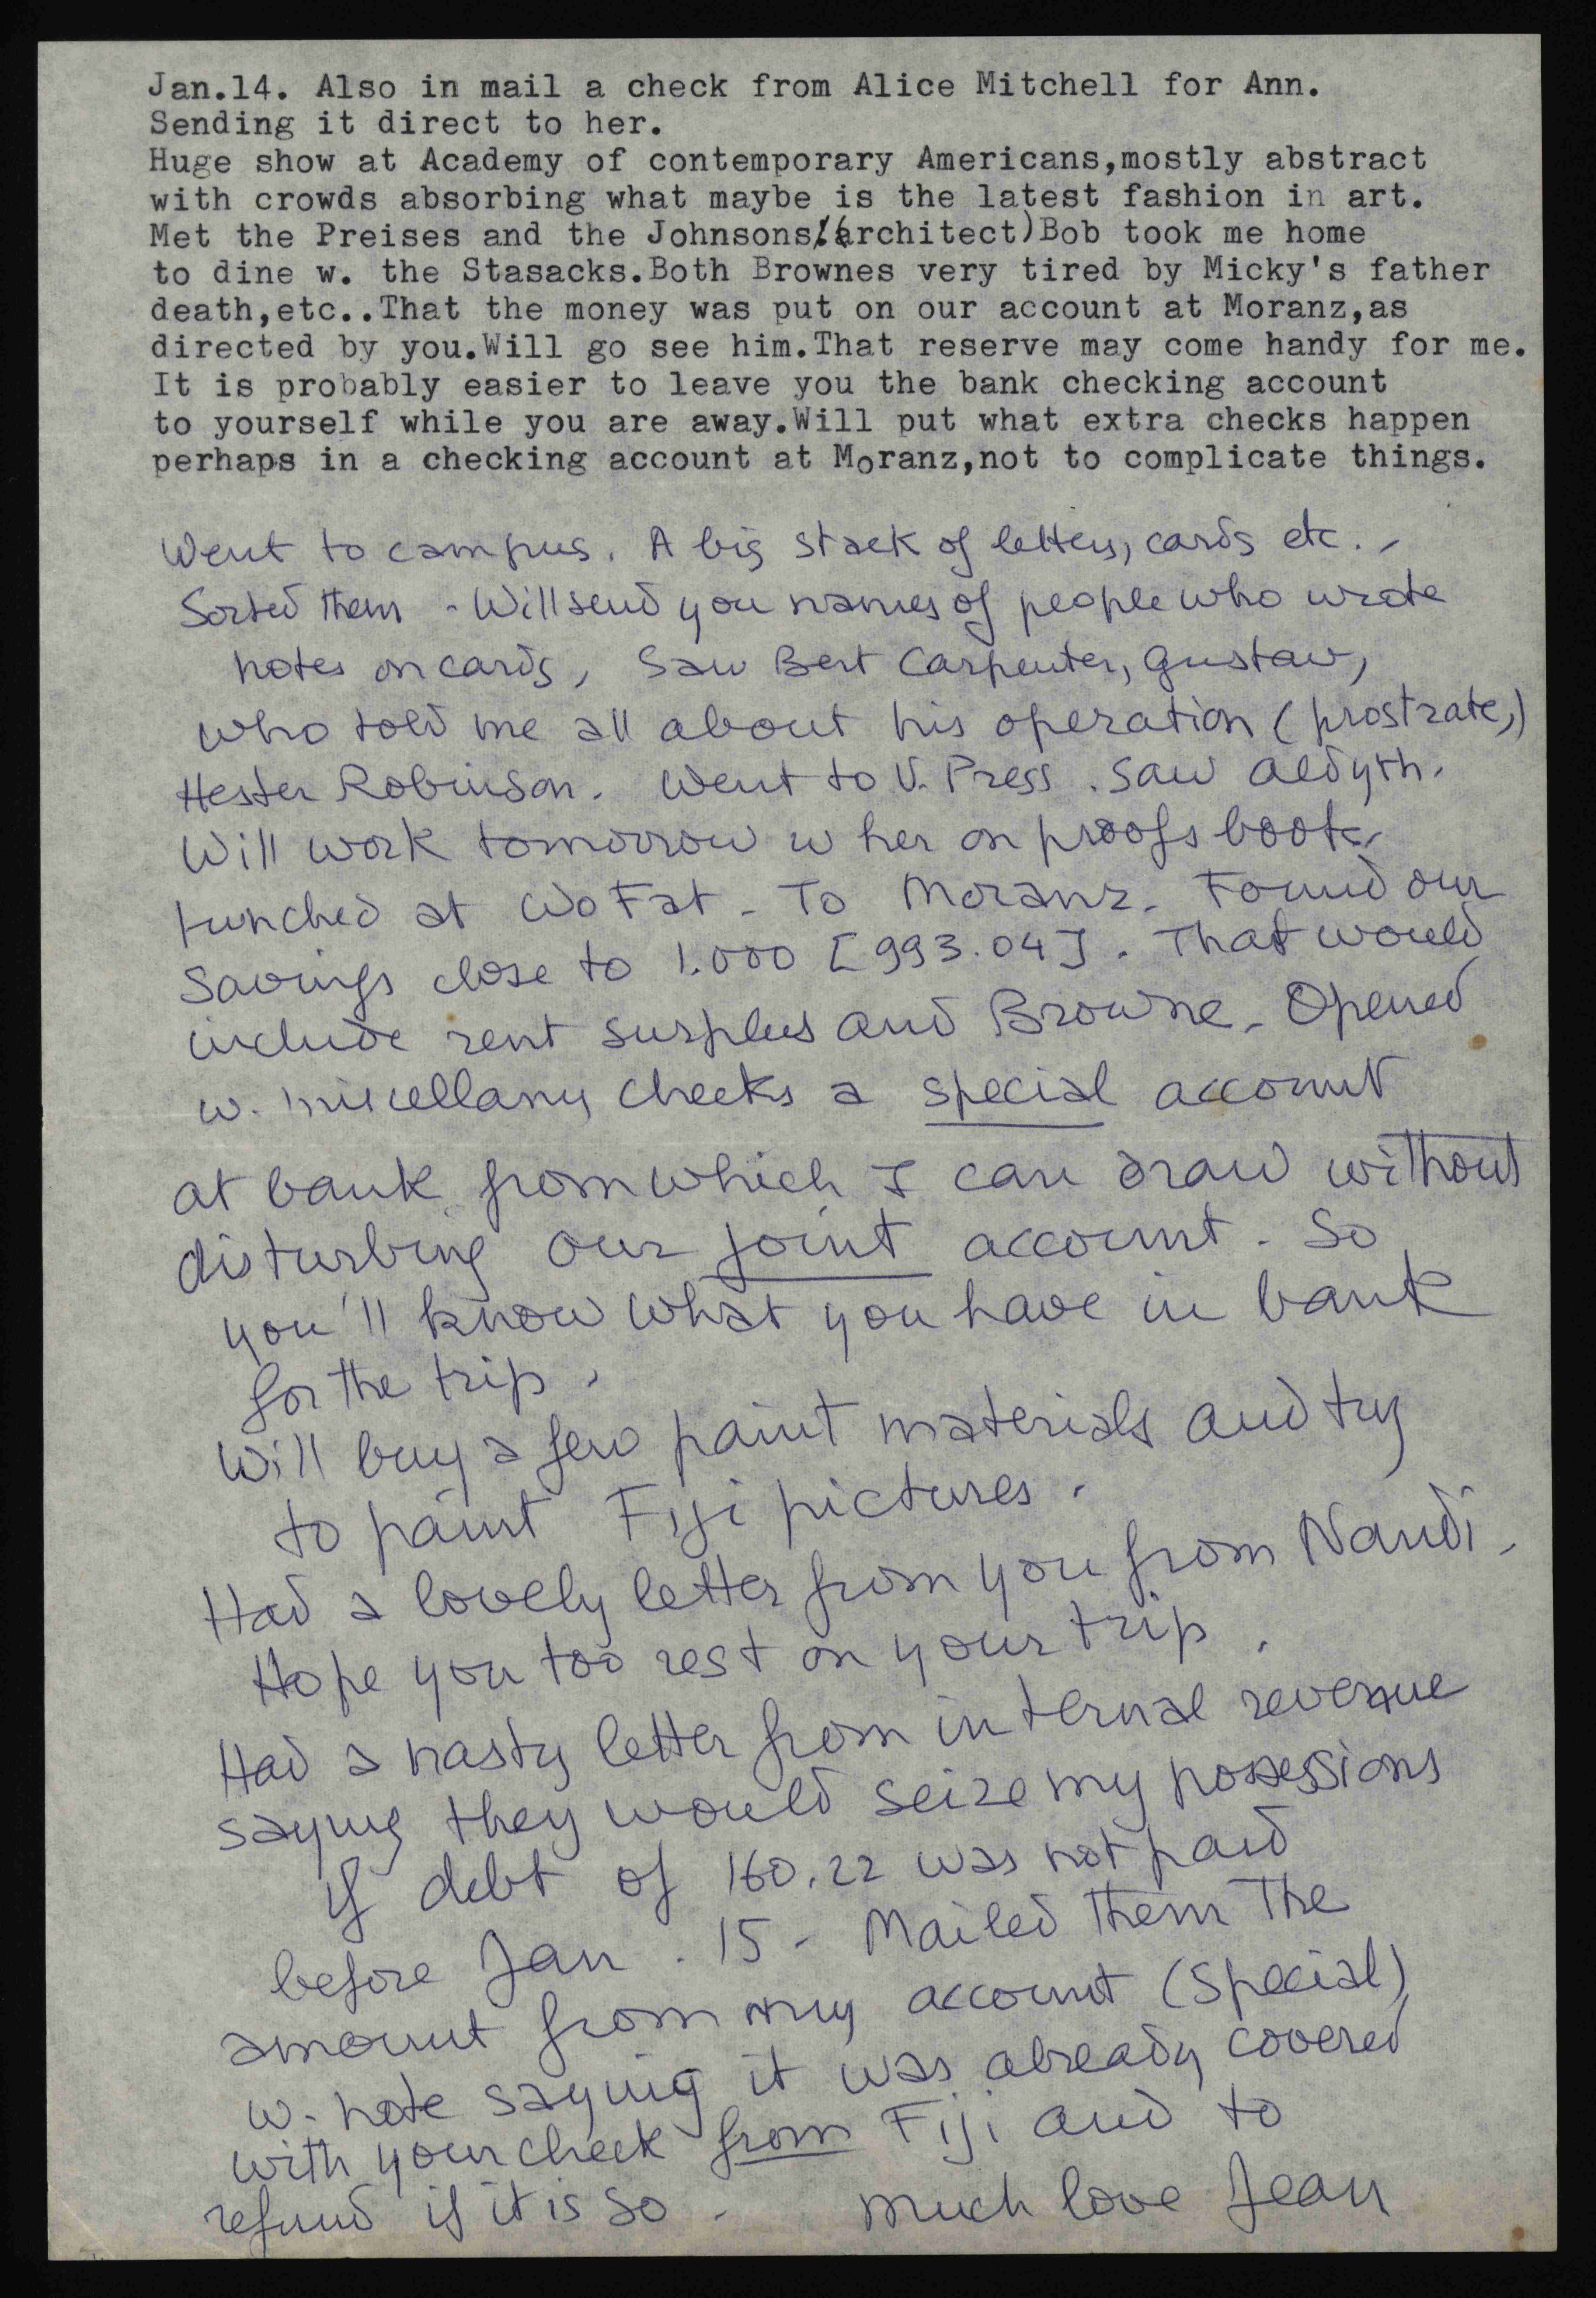 Jan.14. Also in mail a check from Alice Mitchell for Ann.
Sending it direct to her.
Huge show at Academy of contemporary Americans,mostly abstract
with crowds absorbing what maybe is the latest fashion in art.
Met the Preises and the Johnsons.(architect)Bob took me home
to dine w. the Stasacks.Both Brownes very tired by Micky's father
death,etc..That the money was put on our account at Moranz,as
directed by you.Will go see him.That reserve may come handy for me.
It is probably easier to leave you the bank checking account
to yourself while you are away.Will put what extra checks happen
perhaps in a checking account at Moranz,not to complicate things.
Went to campus. A big stack of letters, cards etc. -
Sorted them - Will send you names of people who wrote
notes on cards, Saw Bert Carpenter, Gustav,
who told me all about his operation (prostrate,)
Hester Robinson. Went to U. Press. Saw Aldyth.
Will work tomorrow w her on proofs book.
Lunched at Wo Fat - To Moranz - Found our
Savings close to 1.000 [993.04]. That would
include rent surplus and Browne - Opened
w. miscellany checks a special account
at bank from which I can draw without
disturbing our joint account - So
you'll know what you have in bank
for the trip.
Will buy a few paint materials and try
to paint Fiji pictures.
Had a lovely letter from you from Nandi.
Hope you too rest on your trip.
Had a nasty letter from internal revenue
saying they would seize my possessions
if debt of 160.22 was not paid
before Jan. 15 - Mailed them the
amount from my account (special)
w. note saying it was already covered
with your check from Fiji and to
refund if it is so - Much love Jean